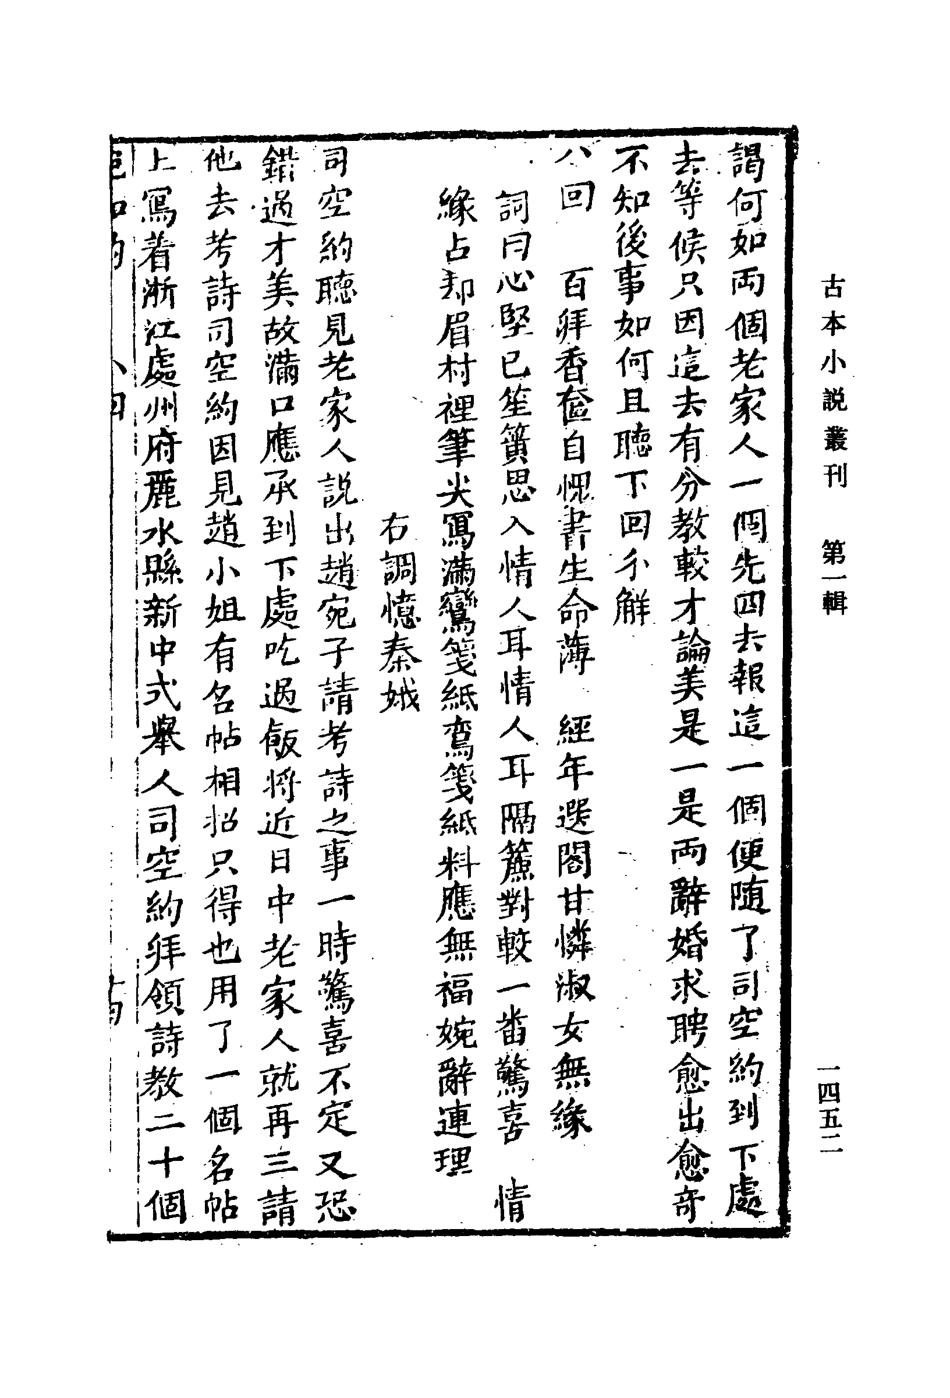 古本小説叢刊　第一輯
一四五二
謁何如両個老家人一個先回去報這一個便随了司空約到下處
去等候只因這去有分教較才論美是一是両辭婚求聘愈出愈奇
不知後事如何且聴下回分解
八回　百拜香奩自愧書生命薄　經年選閣甘憐淑女無緣
詞曰心堅已笙簧思入情人耳情人耳隔簾對較一番驚喜　情
緣占却眉村裡筆尖寫滿鸞箋紙鸞箋紙料應無福婉辭連理
右調憶秦娥
司空約聴見老家人説出趙宛子請考詩之事一時驚喜不定又恐
錯過才美故滿口應承到下處吃過飯將近日中老家人就再三請
他去考詩司空約因見趙小姐有名帖相招只得也用了一個名帖
上寫着浙江處州府麗水縣新中式舉人司空約拜領詩教二十個